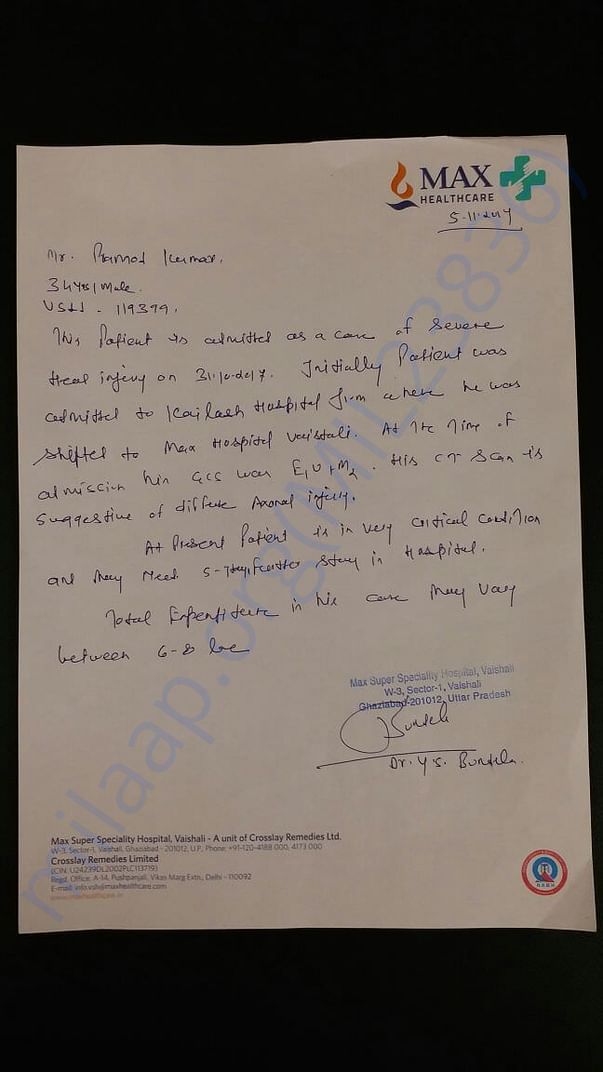 MAX
HEALTHCARE
5-11-2017
Mr. Pramod Kumar.
34 YRS/Male.
VSH - 119399.
This Patient is admitted as a case of Severe
Head injury on 31-10-2017. Initially Patient was
admitted to Kailash Hospital from where he was
shifted to Max Hospital Vaishali. At the Time of
admission his GCS was E1V1M2. His CT Scan is
Suggestive of diffuse Axonal injury.
At Present Patient is in very critical condition
and may Need 5-7 days further stay in Hospital.
Total Expenditure in his case may vary
between 6-8 lac
Max Super Speciality Hospital, Vaishali
W-3, Sector-1, Vaishali
Ghaziabad-201012, Uttar Pradesh
Dr. Y.S. Bundela.
Max Super Speciality Hospital, Vaishali - A unit of Crosslay Remedies Ltd.
W-3, Sector-1, Vaishali, Ghaziabad - 201012, U.P., Phone: +91-120-4188 000, 4173 000
Crosslay Remedies Limited
(CIN: U24239DL2002PLC113719)
Regd. Office, A-14, Pushpanjali, Vikas Marg Extn., Delhi - 110092
E-mail: info.vsh@maxhealthcare.com
www.maxhealthcare.in
milaap.org(MIL23836)